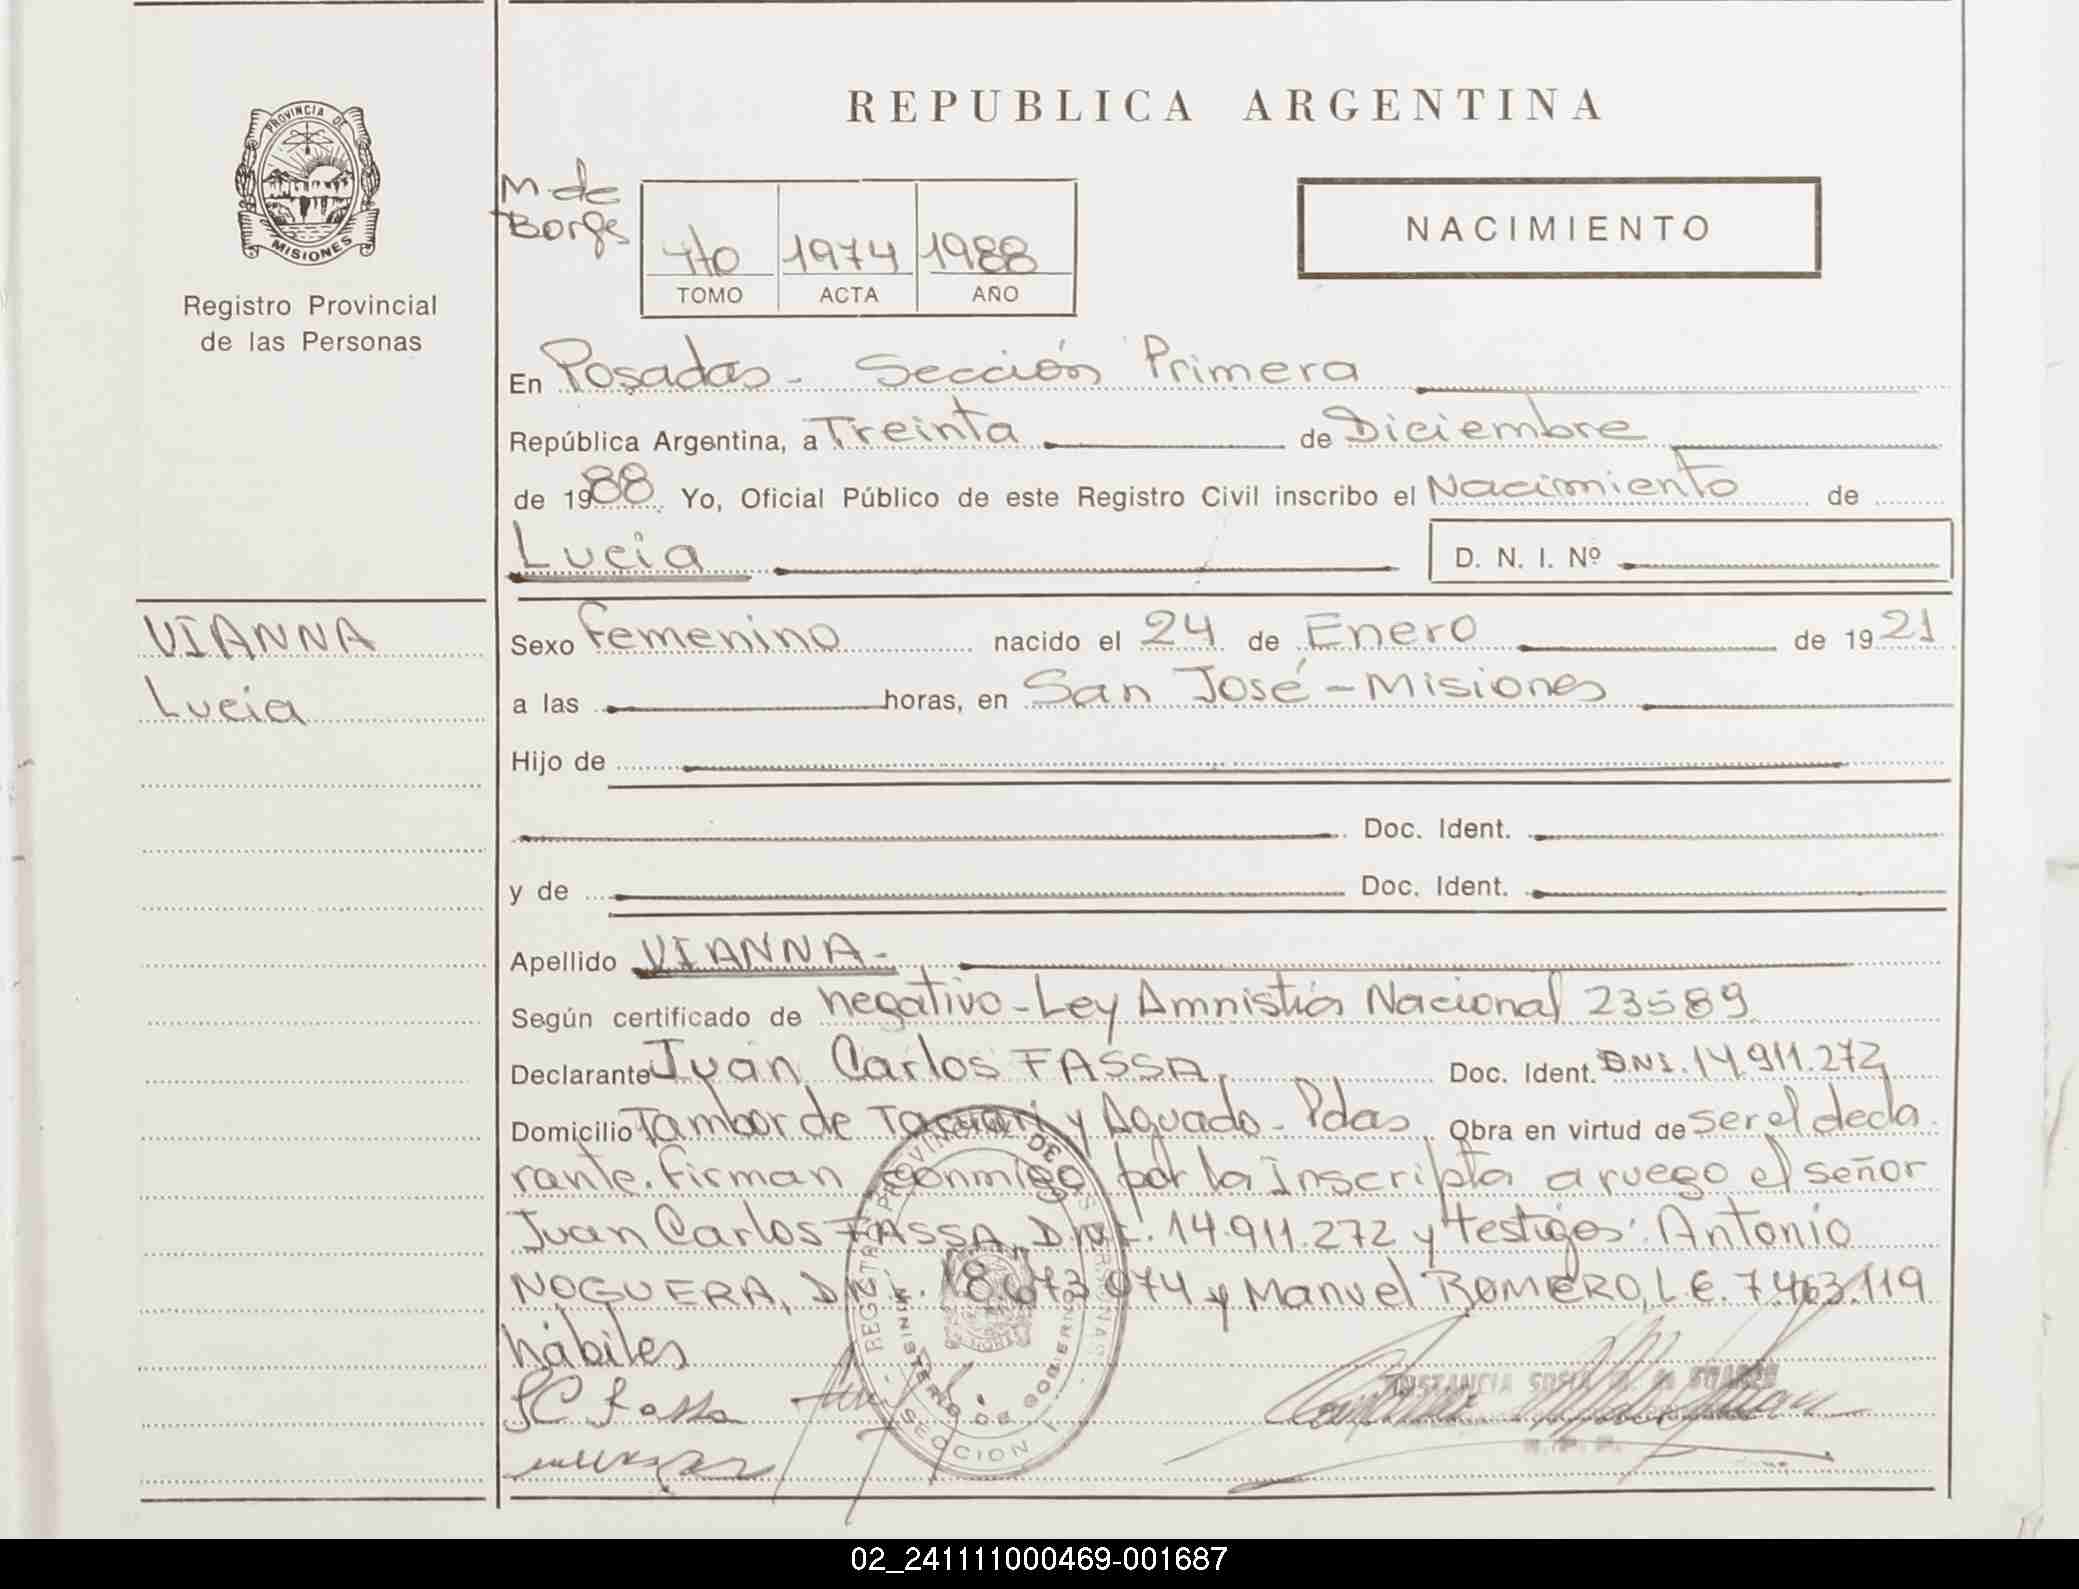 REPUBLICA ARGENTINA
PROVINCIA DE
MISIONES
Registro Provincial
de las Personas
M. de
Borges
4to 1974 1988
TOMO ACTA AÑO
NACIMIENTO
En Posadas - Sección Primera
República Argentina, a Treinta de Diciembre
de 1988. Yo, Oficial Público de este Registro Civil inscribo el Nacimiento de
Lucia D. N. I. Nº
VIANNA
Lucia
Sexo femenino nacido el 24 de Enero de 1921
a las horas, en San José - Misiones
Hijo de
Doc. Ident.
y de Doc. Ident.
Apellido VIANNA -
Según certificado de negativo - Ley Amnistia Nacional 23589
Declarante Juan Carlos FASSA, Doc. Ident. DNI. 14.911.272
Domicilio Tambor de Tacuari y Aguado - Pdas. Obra en virtud de ser el decla
rante. firman conmigo por la Inscripta a ruego el señor
Juan Carlos FASSA, DNI. 14.911.272 y testigos: Antonio
NOGUERA, DNI. 18.673.074 y Manuel ROMERO, L.E. 7.463.119
hábiles
JC Fassa
REGISTRO PROVINCIAL DE LAS PERSONAS
MINISTERIO DE GOBIERNO
SECCION 1
02_241111000469-001687